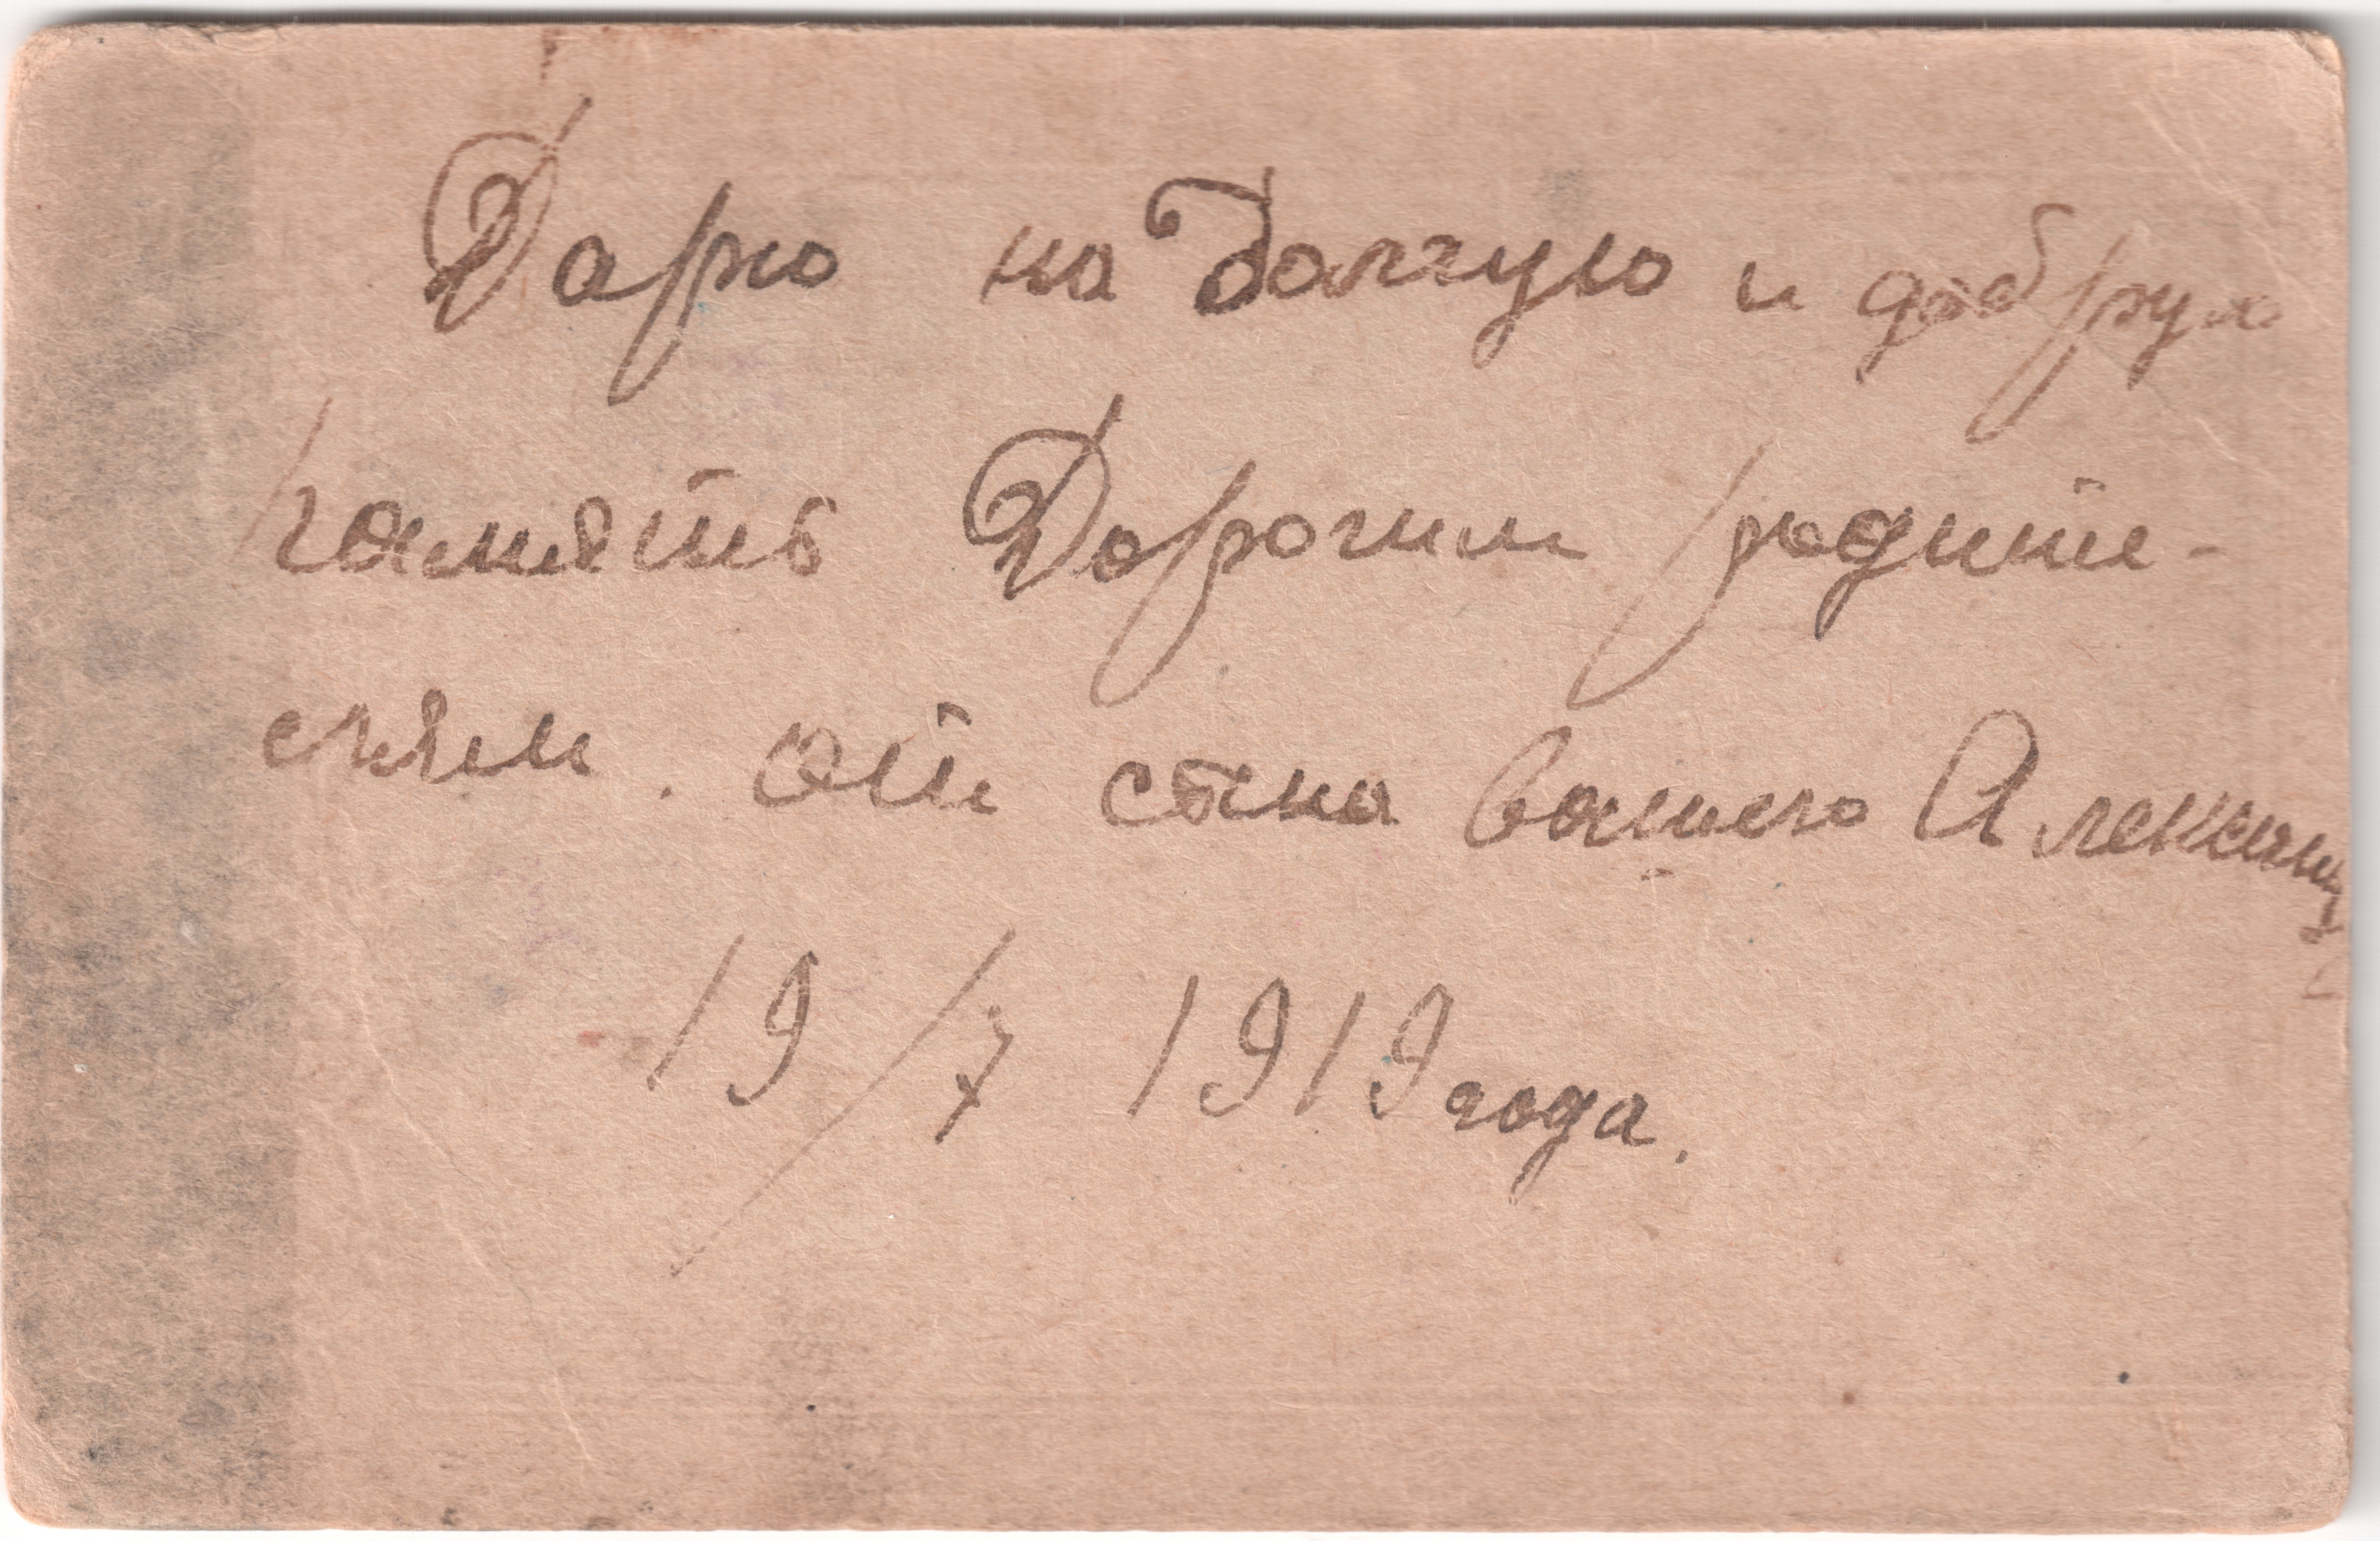 Дарю на Долгую и добрую
память Дорогим родите-
елям. от сына вашего Александра
19/7 1919 года.